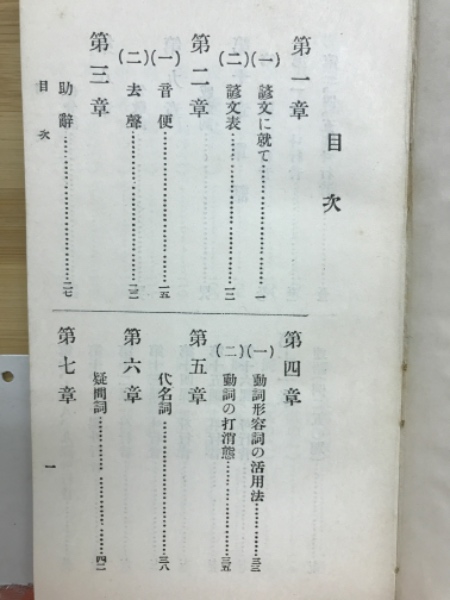 目次
第一章
(一) 諺文に就て……一
(二) 諺文表……一二
第二章
(一) 音便……一五
(二) 去聲……二二
第三章
助辭……二七
第四章
(一) 動詞形容詞の活用法……三三
(二) 動詞の打消態……三五
第五章
代名詞……三八
第六章
疑問詞……四二
第七章
目次
一